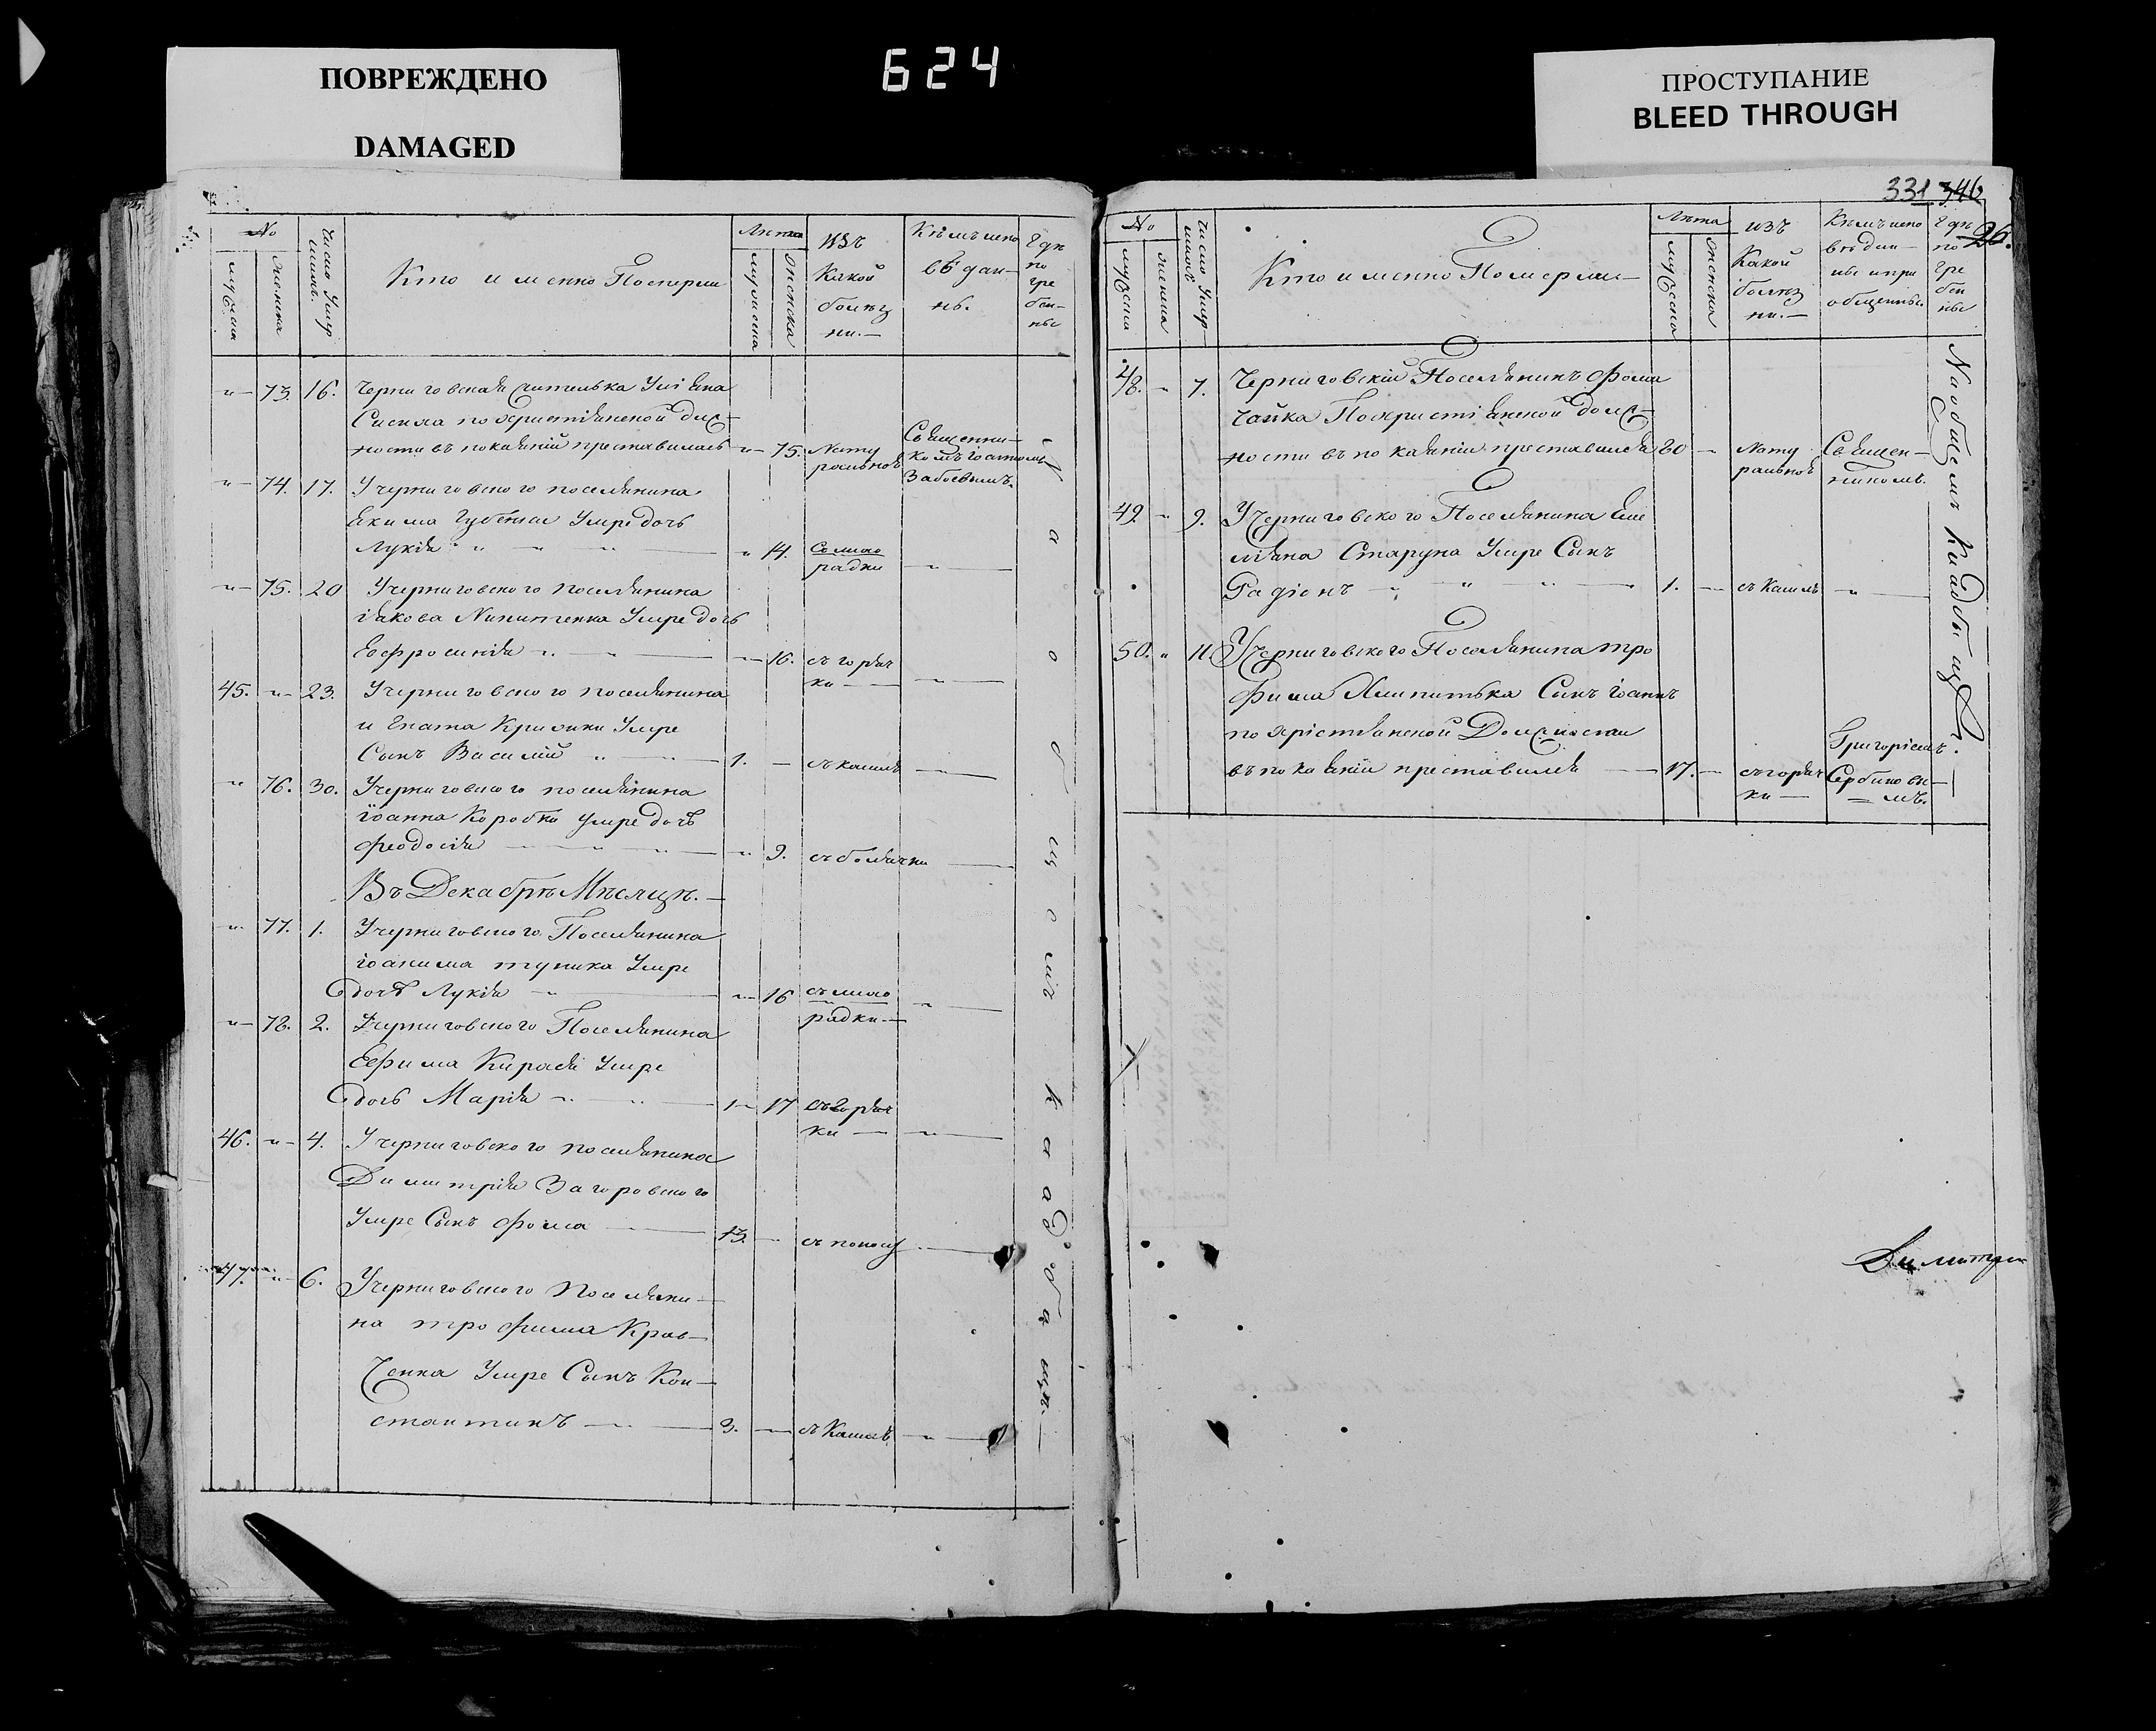 ПОВРЕЖДЕНО
DAMAGED
624
ПРОСТУПАНИЕ
BLEED THROUGH
331 346
26.
No
мужеска
женска
Число умер
Кто именно Померли
Лѣта
мужеска
женска
изъ
Какой
болѣз
ни.—
Кѣмъ испо
вѣдан—
нъ.
Гдѣ
по
гре
бен—
ны
"— 73. 16. Черниговская жителька Улiяна
по христiянской долж—
ности въ покаянiй преставилась — " — 75. Нату
ральной
Священни—
комъ Iоанномъ
"— 74. 17. У черниговского поселянина
Екима Губенка Умре дочь
Лукiя " — " — " 14. Съ лихо
радки — " —
"— 75. 20 У черниговского поселянина
iякова Никитенка Умре дочь
Евфросинiя " — " — 16. съ горяч
ки — — " —
45. — " — 23. У черниговского поселянина
игната Умре
Сынъ Василiй " — 1. — съ кашля —
" 76. 30. У черниговского поселянина
iоанна Коробки умре дочь
феодосiя — " — " 9. съ болячки —
Въ Декабрѣ Мѣсяцѣ.—
" 77. 1. У черниговского Поселянина
iоакима тупика Умре
дочь Лукiя — " — 16 съ лихо
радки —
"— 78. 2. У черниговского Поселянина
Ефима Умре
дочь Марiя — " — 17 съ горяч
ки — — " —
46. — " — 4. У черниговского поселянина
Димитрiя Загоровского
Умре Сынъ фома — 13. — съ поносу —
47. — " — 6. У черниговского Поселяни—
на трофима Крав—
ченка Умре Сынъ Кон—
стантинъ — " — 3. — съ Кашля — " —
На общемъ кладбищѣ.
No
мужеска
женска
Число умер
Кто именно Померли
Лѣта
мужеска
женска
изъ
Какой
болѣз
ни.—
Кѣмъ испо
вѣдан—
ны и прi
общенны
Гдѣ
по
гре
бен
ны
48. — 7. Черниговскiй Поселянинъ фома
чайка По христiянской долж—
ности въ покаянiи преставился 80 — Нату
ральной
Священ—
никомъ.
49. — 9. У черниговского Поселянина Еме
лiяна Старуна Умре Сынъ
Радiонъ " — " — 1. — съ Кашля — " —
50. " 11 У черниговского Поселянина тро
фима Сынъ iоаннъ
по хрiстiянской Должности
въ покаянiи преставился — 17. — съ горяч
ки —
Григорiемъ
Сербиновы—
мъ.
На общемъ Кладбищѣ.
Димитри